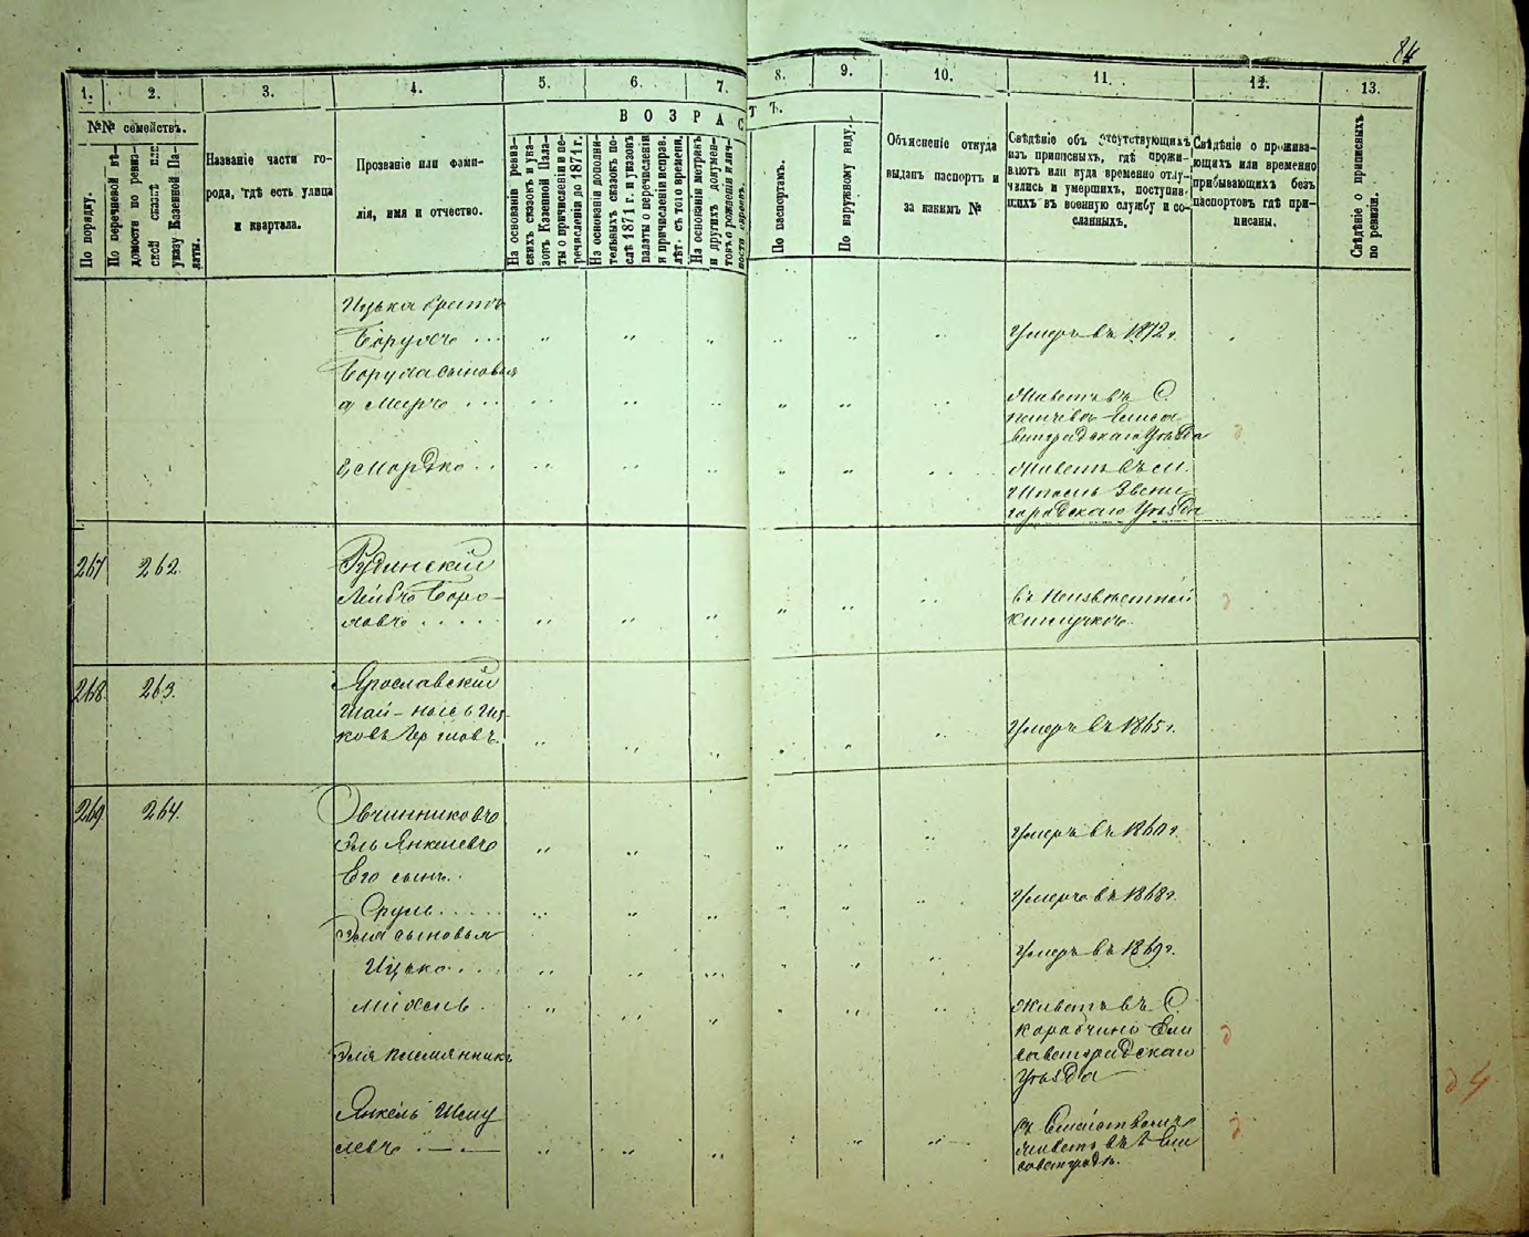 84
1.
2.
3.
4.
5.
6.
7.
8.
9.
10.
11.
12.
13.
№№ семействъ.
ВОЗРАСТЪ.
По порядку.
По перечневой вѣ-
домости по ревиз-
ской сказкѣ или
указу Казенной Па-
латы.
Названіе части го-
рода, гдѣ есть улица
и квартала.
Прозваніе или фами-
лія, имя и отчество.
На основаніи ревиз-
скихъ сказокъ и ука-
зовъ Казенной Пала-
ты о причисленіи и пе-
речисленіи до 1871 г.
На основаніи дополни-
тельныхъ сказокъ по-
слѣ 1871 г. и указовъ
палаты о перечисленіи
и причисленіи исправ.
лѣт. съ того времени.
На основаніи метрикъ
и другихъ докумен-
товъ о рожденіи и лич-
ности евреевъ.
По паспортамъ.
По наружному виду.
Объясненіе откуда
выданъ паспортъ и
за какимъ №
Свѣдѣніе объ отсутствующихъ
изъ приписныхъ, гдѣ прожи-
ваютъ или куда временно отлу-
чились и умершихъ, поступив-
шихъ въ военную службу и со-
сланныхъ.
Свѣдѣніе о прожива-
ющихъ или временно
прибывающихъ безъ
паспортовъ гдѣ при-
писаны.
Свѣдѣніе о приписныхъ
по ревизіи.
Ицька братъ
Борухъ . . . Умеръ въ 1872 г.
Боруха сыновья
а Меръ . . . Живетъ въ С.
Елиса-
ветградскаго Уѣзда
Мордко . . Живетъ въ м.
Шполѣ Звени-
городскаго Уѣзда
267 262. Рудинскій
Лейба Боро-
ховъ . . . . . въ неизвѣстной
отлучкѣ.
268 263. Ярославскій
Умеръ въ 1865 г.
269 264. Овчинниковъ
Эль Янкелевъ Умеръ въ 1860 г.
Его сынъ.
Сруль . . . . . Умеръ въ 1868 г.
Эля сыновья
Ицько . . . Умеръ въ 1869 г.
Михель . Живетъ въ С.
Карабчино Ели-
саветградскаго
Уѣзда
Эля племянникъ
Янкель Шму-
левъ . — . — Съ Семействомъ
живетъ въ Ели-
саветградѣ.